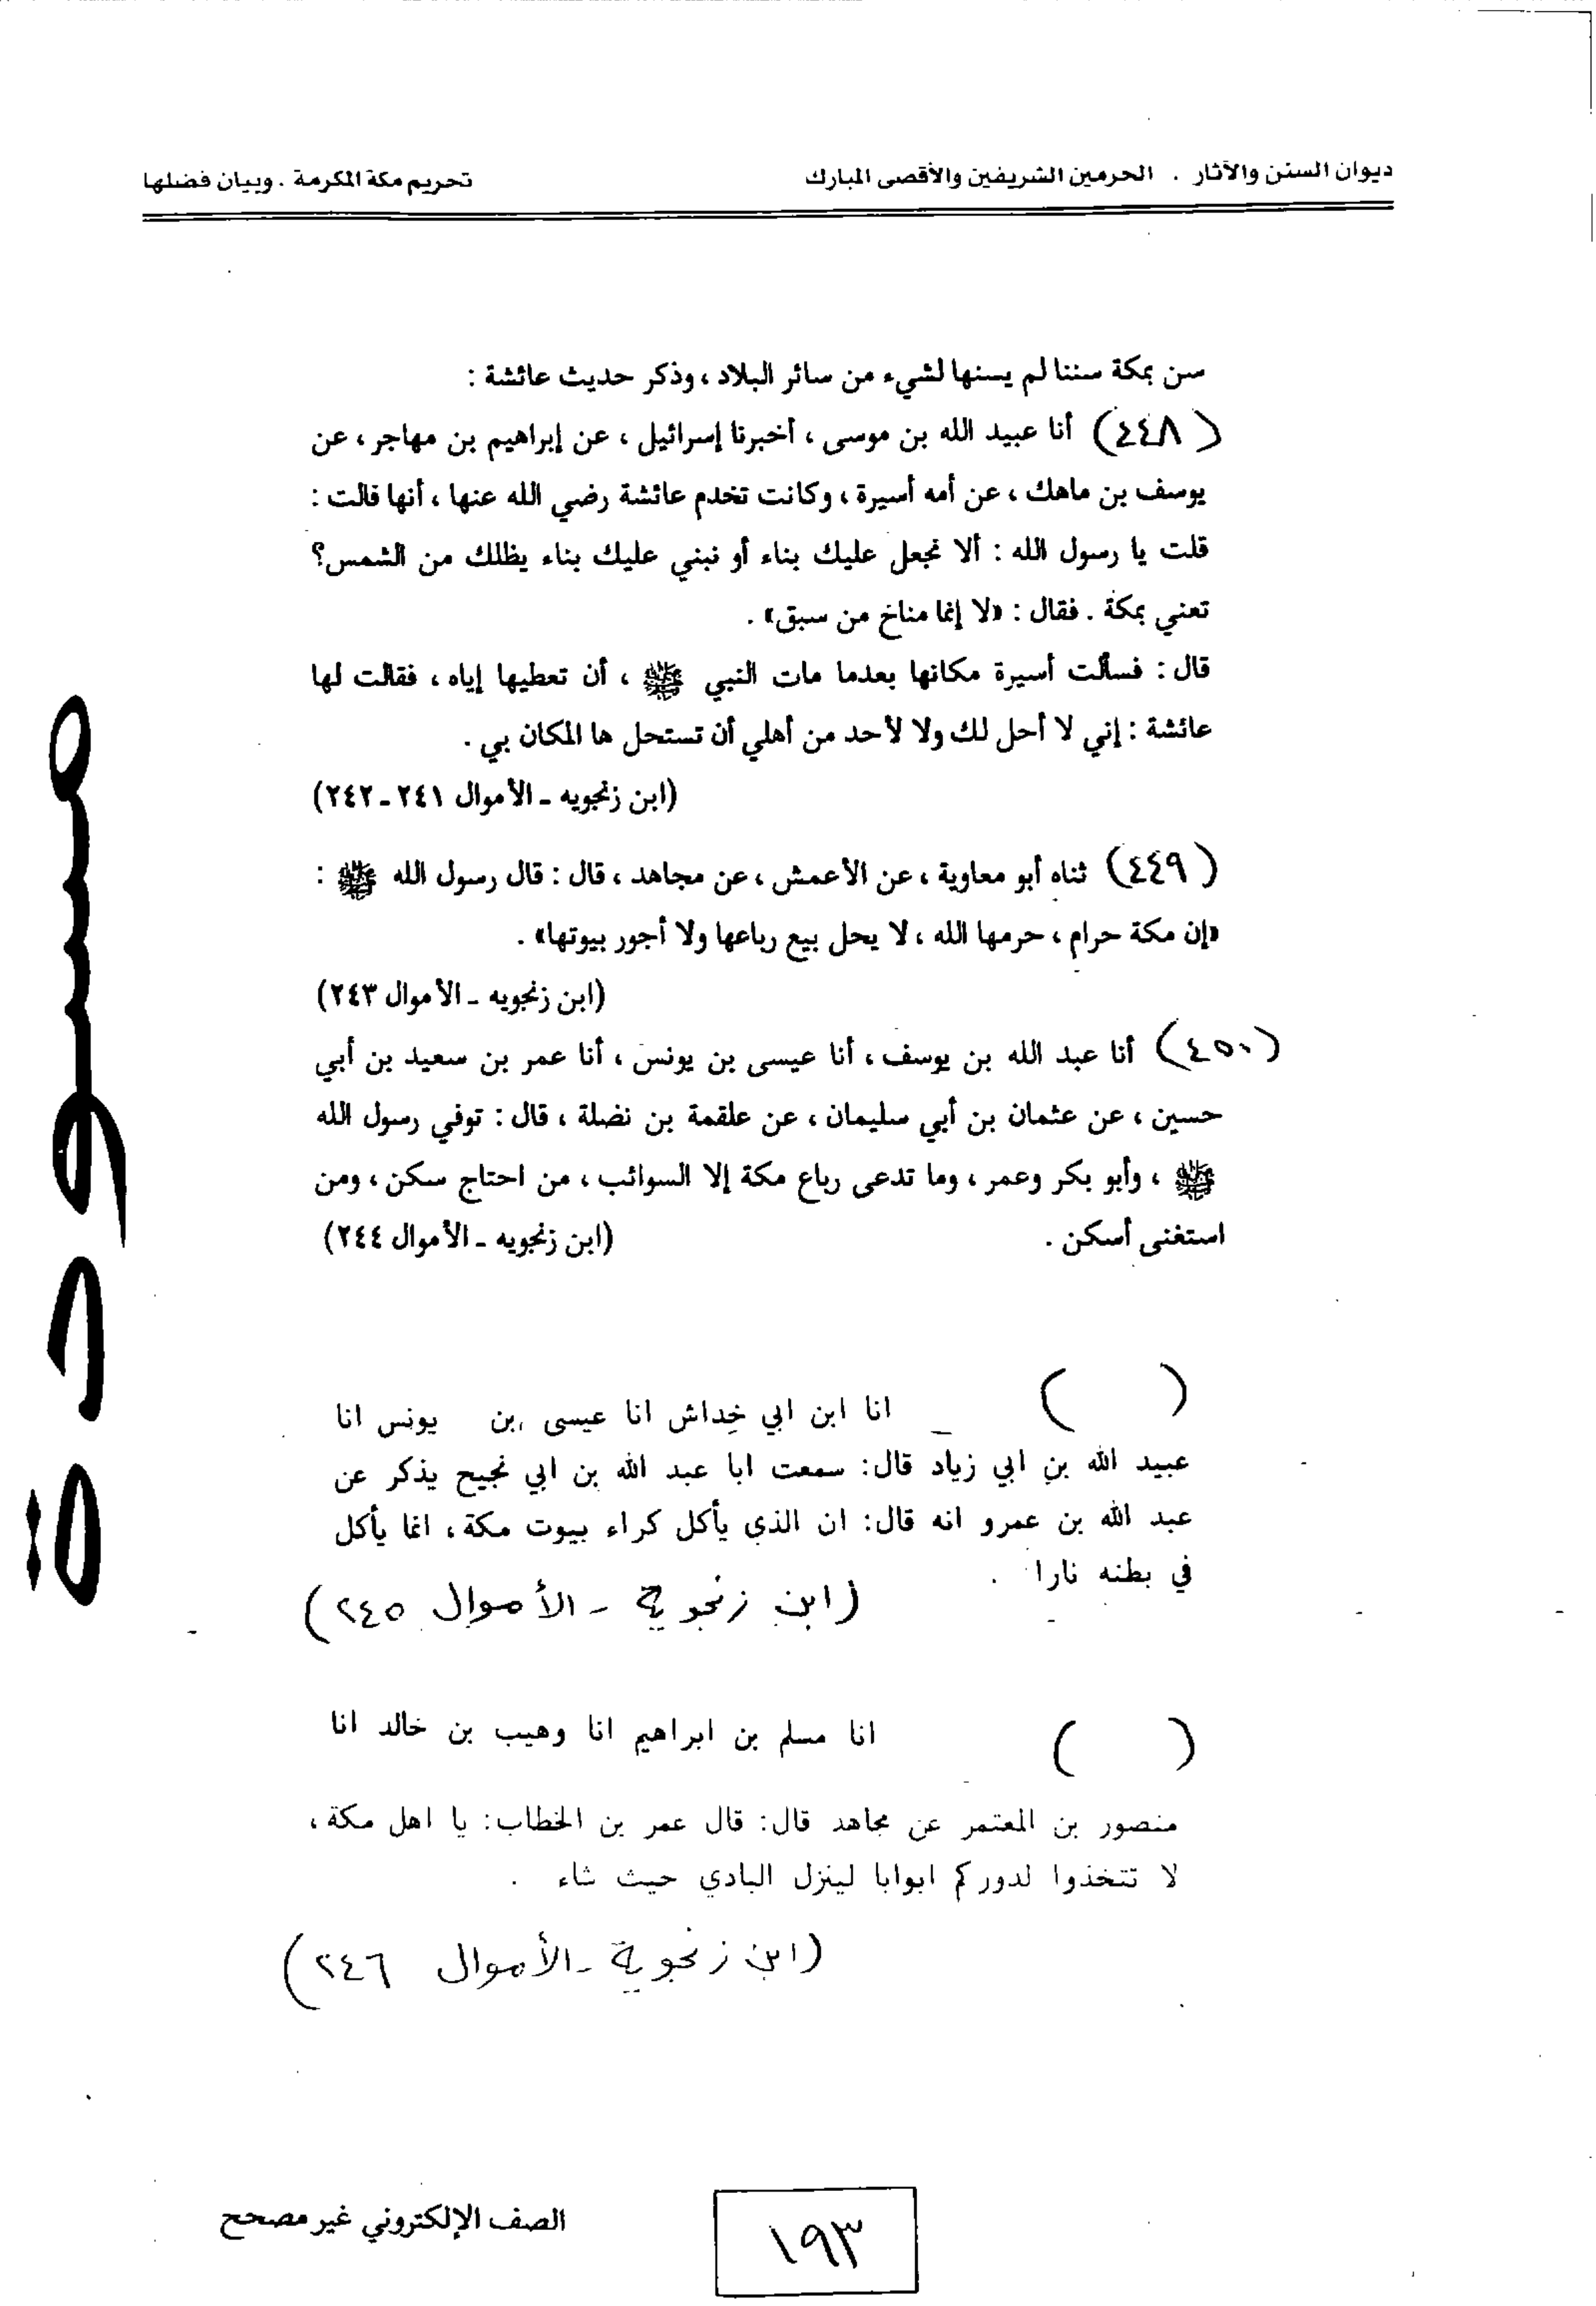 ديوان السنن والآثار . الحرمين الشريفين والأقصى المبارك
تحريم مكة المكرمة . وبيان فضلها
سن بمكة سننا لم يسنها لشيء من سائر البلاد ، وذكر حديث عائشة :
(٤٤٨) أنا عبيد الله بن موسى ، أخبرنا إسرائيل ، عن إبراهيم بن مهاجر ، عن
يوسف بن ماهك ، عن أمه أسيرة ، وكانت تخدم عائشة رضي الله عنها ، أنها قالت :
قلت يا رسول الله : ألا نجعل عليك بناء أو نبني عليك بناء يظلك من الشمس؟
تعني بمكة . فقال : «لا إنما مناخ من سبق» .
قال : فسألت أسيرة مكانها بعدما مات النبي ﷺ ، أن تعطيها إياه ، فقالت لها
عائشة : إني لا أحل لك ولا لأحد من أهلي أن تستحل ها المكان بي .
(ابن زنجويه ـ الأموال ٢٤١ـ٢٤٢)
(٤٤٩) ثناه أبو معاوية ، عن الأعمش ، عن مجاهد ، قال : قال رسول الله ﷺ :
«إن مكة حرام ، حرمها الله ، لا يحل بيع رباعها ولا أجور بيوتها» .
(ابن زنجويه ـ الأموال ٢٤٣)
(٤٥٠) أنا عبد الله بن يوسف ، أنا عيسى بن يونس ، أنا عمر بن سعيد بن أبي
حسين ، عن عثمان بن أبي سليمان ، عن علقمة بن نضلة ، قال : توفي رسول الله
ﷺ ، وأبو بكر وعمر ، وما تدعى رباع مكة إلا السوائب ، من احتاج سكن ، ومن
استغنى أسكن . (ابن زنجويه ـ الأموال ٢٤٤)
( ) انا ابن ابي خِداش انا عيسى بن يونس انا
عبيد الله بن ابي زياد قال: سمعت ابا عبد الله بن ابي نجيح يذكر عن
عبد الله بن عمرو انه قال: ان الذي يأكل كراء بيوت مكة، انما يأكل
في بطنه نارا .
(ابن زنجوية ـ الأموال ٢٤٥)
( ) انا مسلم بن ابراهيم انا وهيب بن خالد انا
منصور بن المعتمر عن مجاهد قال: قال عمر بن الخطاب: يا اهل مكة،
لا تتخذوا لدوركم ابوابا لينزل البادي حيث شاء .
(ابن زنجوية ـ الأموال ٢٤٦)
مسودة
الصف الإلكتروني غير مصحح
١٩٣